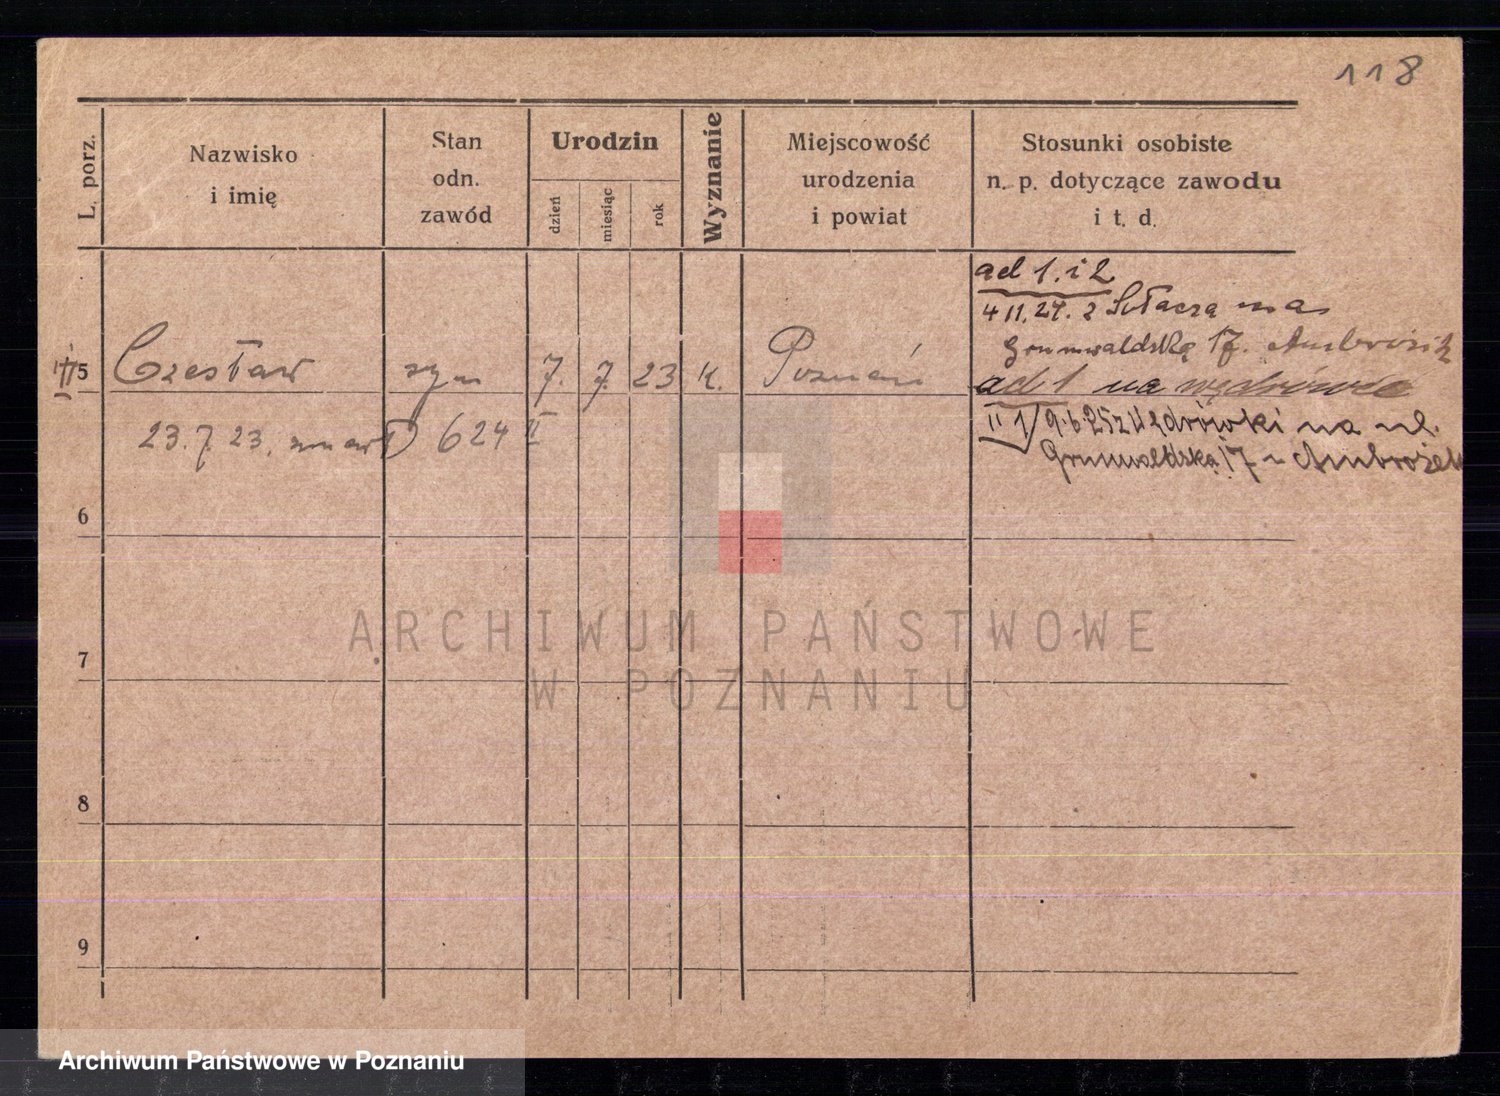 118
L. porz.
Nazwisko
i imię
Stan
odn.
zawód
Urodzin
dzień
miesiąc
rok
Wyznanie
Miejscowość
urodzenia
i powiat
Stosunki osobiste
n. p. dotyczące zawodu
i t. d.
ad 1. i 2
4 11. 24. z Sołacza na
Grunwaldską 17.
5 Czesław syn 7. 7. 23 k. Poznań
ad 1 na wędrówce
23. 7. 23. zmarł 624 II
II 1) 9.6.25 z Wędrówki na ul.
Grunwaldską 17 Ambrożek
6
7
8
9
ARCHIWUM PAŃSTWOWE
W POZNANIU
Archiwum Państwowe w Poznaniu